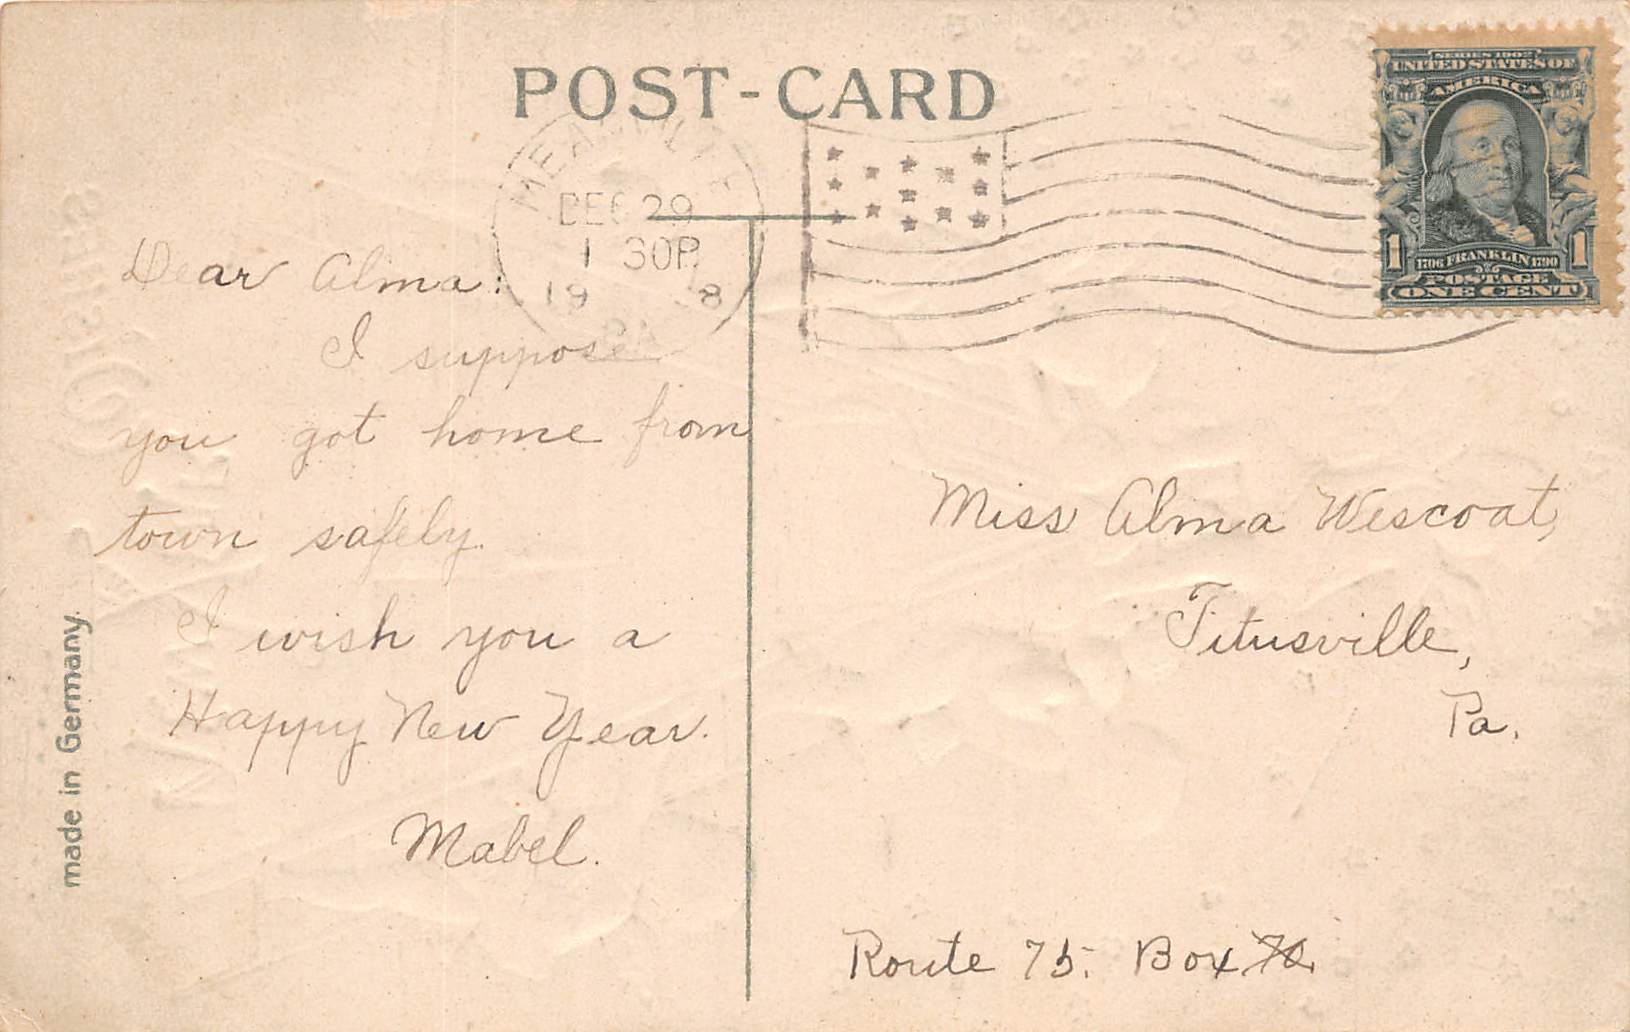 POST-CARD
SERIES 1902
UNITED STATES OF
AMERICA
1 1
1706 FRANKLIN 1790
POSTAGE
ONE CENT
DEC 29
1 30P
19 8
PA
Dear Alma:
I suppose
you got home from
town safely.
I wish you a
Happy New Year.
Mabel.
Miss Alma Wescoat,
Titusville,
Pa.
Route 75. Box 70.
made in Germany.